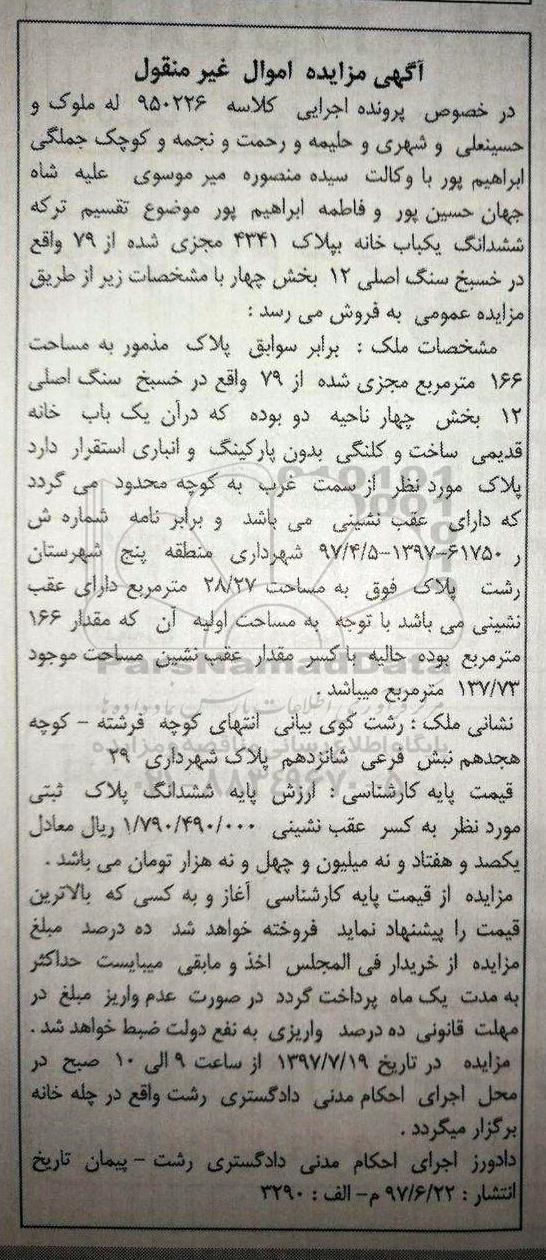 آگهی مزایده اموال غیر منقول
در خصوص پرونده اجرایی کلاسه ۹۵۰۲۲۶ له ملوک و
حسینعلی و شهری و حلیمه و رحمت و نجمه و کوچک جملگی
ابراهیم پور با وکالت سیده منصوره میر موسوی علیه شاه
جهان حسین پور و فاطمه ابراهیم پور موضوع تقسیم ترکه
ششدانگ یکباب خانه بپلاک ۴۳۴۱ مجزی شده از ۷۹ واقع
در خسبخ سنگ اصلی ۱۲ بخش چهار با مشخصات زیر از طریق
مزایده عمومی به فروش می رسد :
مشخصات ملک : برابر سوابق پلاک مذمور به مساحت
۱۶۶ مترمربع مجزی شده از ۷۹ واقع در خسبخ سنگ اصلی
۱۲ بخش چهار ناحیه دو بوده که درآن یک باب خانه
قدیمی ساخت و کلنگی بدون پارکینگ و انباری استقرار دارد
پلاک مورد نظر از سمت غرب به کوچه محدود می گردد
که دارای عقب نشینی می باشد و برابر نامه شماره ش
ر ۶۱۷۵۰-۱۳۹۷-۹۷/۴/۵ شهرداری منطقه پنج شهرستان
رشت پلاک فوق به مساحت ۲۸/۲۷ مترمربع دارای عقب
نشینی می باشد با توجه به مساحت اولیه آن که مقدار ۱۶۶
مترمربع بوده حالیه با کسر مقدار عقب نشین مساحت موجود
۱۳۷/۷۳ مترمربع میباشد .
نشانی ملک : رشت کوی بیانی انتهای کوچه فرشته - کوچه
هجدهم نبش فرعی شانزدهم پلاک شهرداری ۲۹
قیمت پایه کارشناسی : ارزش پایه ششدانگ پلاک ثبتی
مورد نظر به کسر عقب نشینی ۱/۷۹۰/۴۹۰/۰۰۰ ریال معادل
یکصد و هفتاد و نه میلیون و چهل و نه هزار تومان می باشد .
مزایده از قیمت پایه کارشناسی آغاز و به کسی که بالاترین
قیمت را پیشنهاد نماید فروخته خواهد شد ده درصد مبلغ
مزایده از خریدار فی المجلس اخذ و مابقی میبایست حداکثر
به مدت یک ماه پرداخت گردد در صورت عدم واریز مبلغ در
مهلت قانونی ده درصد واریزی به نفع دولت ضبط خواهد شد .
مزایده در تاریخ ۱۳۹۷/۷/۱۹ از ساعت ۹ الی ۱۰ صبح در
محل اجرای احکام مدنی دادگستری رشت واقع در چله خانه
برگزار میگردد .
دادورز اجرای احکام مدنی دادگستری رشت - پیمان تاریخ
انتشار : ۹۷/۶/۲۲ م- الف : ۳۲۹۰
ParsNamadData